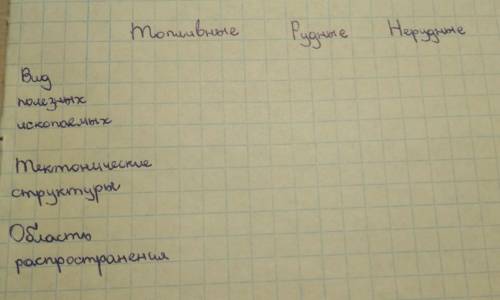 Топливные Рудные Нерудные
Вид
полезных
ископаемых
Тектонические
структуры
Область
распространения